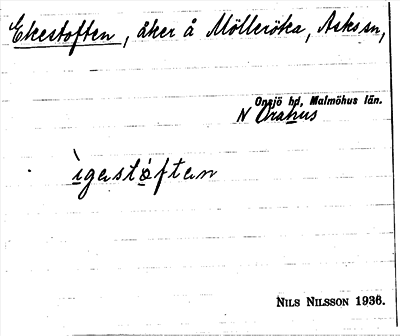 Ekestoften, åker å Mölleröka, Asks sn,
Onsjö hd, Malmöhus län.
N Orahus
ìgastǿftan
NILS NILSSON 1936.